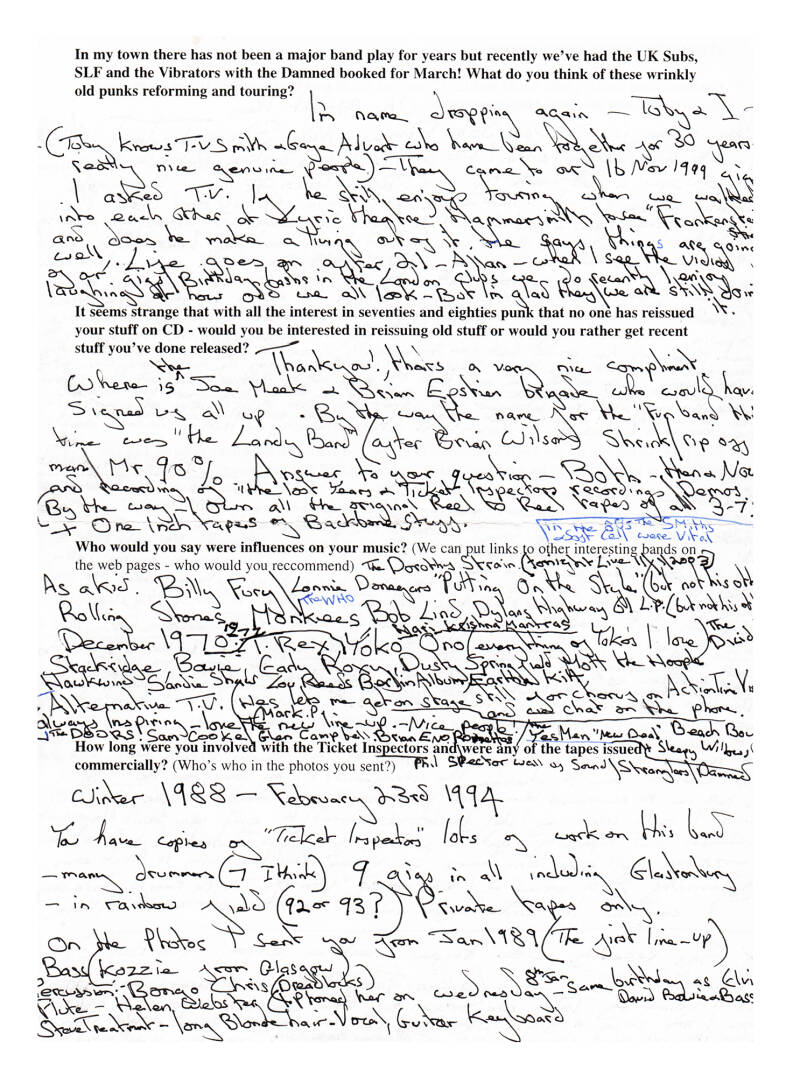 In my town there has not been a major band play for years but recently we've had the UK Subs,
SLF and the Vibrators with the Damned booked for March! What do you think of these wrinkly
old punks reforming and touring?
I'm name dropping again – Toby & I –
(Toby knows T.V Smith & Gaye Advert who have been together for 30 years
really nice genuine people) – They came to our 16 Nov 1999 gig
I asked T.V. if he still enjoys touring when we walked
into each other at Lyric theatre Hammersmith to see "Frankenste
and does he make a living out of it. He says, things are goin
well. Life goes on after 21 – Allan – when I see the videos
of our gigs/Birthday bashs in the London Clubs we do recently I enjoy
laughing at how odd we all look – But I'm glad they/we are still doin
it.
It seems strange that with all the interest in seventies and eighties punk that no one has reissued
your stuff on CD - would you be interested in reissuing old stuff or would you rather get recent
stuff you've done released?
Thankyou!, thats a very nice compliment.
Where is the Joe Meek & Brian Epstien brigade who would hav
Signed us all up. By the way the name for the "Fun band thi
time was "the Landy Band" (after Brian Wilsons Shrink/rip off
man/Mr 90% Answer to your question – Both – Here & Now
and recording of "the lost Years & Ticket Inspectors recordings/Demos
(By the way – I own all the original Reel to Reel tapes of all 3-7
+ One Inch tapes of Backbone Stuff.
in the 80s the Smiths
& Soft Cell were Vital
Who would you say were influences on your music? (We can put links to other interesting bands on
the web pages - who would you reccommend) The Dorothy Strain. (tonight Live 11/1/2003)
As a kid. Billy Fury/Lonnie Donegans "Putting On the Style" (but not his oth
Rolling Stones, The WHO Monkees Bob Lind, Dylans Highway 61 L.P. (but not his ot
Hare Krishna Mantras
December 1970: 1972 T. Rex, Yoko Ono (everything of Yoko's I love) The Druid
Stackridge Bowie, Early Roxy, Dusty Springfield Mott the Hoople
Hawkwind Sandie Shaw Lou Reeds Berlin Album/Eartha Kitt
Alternative T.V. (Has lets me get on stage still for chorus on Action Time Vi
Mark. P.) and we chat on the phone.
always Inspiring – love the new line-up. – Nice people! / the Yes Men "New Deal" Beach Boy
The DOORS! Sam Cooke/Glen Campbell. Brian ENO
How long were you involved with the Ticket Inspectors and were any of the tapes issued + Sleepy Willows
commercially? (Who's who in the photos you sent?) Phil Spector Wall of Sound/Stranglers/Damned
Winter 1988 – February 23rd 1994
You have copies of "Ticket Inspectors" lots of work on this band
– many drummers (7 I think) 9 gigs in all including Glastonbury
– in rainbow field (92 or 93?) Private tapes only.
On the Photos I sent you from Jan 1989 (The first line-up)
Bass (Kozzie from Glasgow)
ercussion – Bongo Chris (Dreadlocks)
Flute – Helen Webster (I Phoned her on wednesday – 8th Jan same birthday as Elvi
David Bowie & Bass
Steve Treatment – long Blonde hair – Vocal, Guitar Keyboard